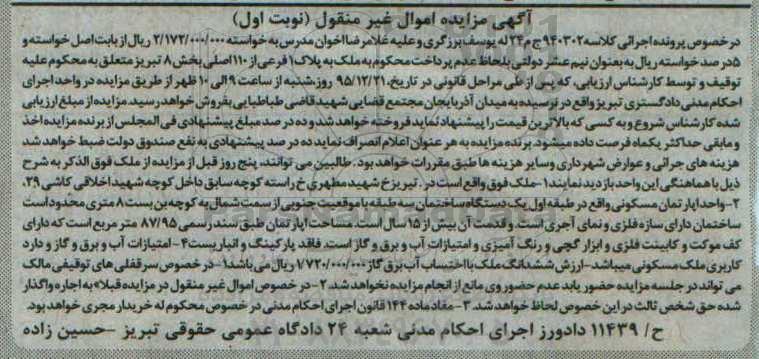 آگهی مزایده اموال غیر منقول (نوبت اول)
در خصوص پرونده اجرائی کلاسه ۹۴۰۳۰۲ج م۲۴ له یوسف برزگری و علیه غلامرضا اخوان مدرس به خواسته ۲/۱۷۲/۰۰۰/۰۰۰ ریال از بابت اصل خواسته و
۵ در صد خواسته ریال به بعنوان نیم عشر دولتی بلحاظ عدم پرداخت محکوم به ملک به پلاک ۱ فرعی از ۱۱۰ اصلی بخش ۸ تبریز متعلق به محکوم علیه
توقیف و توسط کارشناس ارزیابی، که پس از طی مراحل قانونی در تاریخ، ۹۵/۱۲/۲۱ روز، شنبه از ساعت ۹ الی ۱۰ ظهر از طریق مزایده در واحد اجرای
احکام مدنی دادگستری تبریز واقع در نرسیده به میدان آذربایجان مجتمع قضایی شهید قاضی طباطبایی بفروش خواهد رسید. مزایده از مبلغ ارزیابی
شده کارشناس شروع و به کسی که بالاترین قیمت را پیشنهاد نماید فروخته خواهد شد و ده در صد مبلغ پیشنهادی فی المجلس از برنده مزایده اخذ
و مابقی حداکثر یکماه فرصت داده میشود. برنده مزایده به هر عنوان اعلام انصراف نماید ده در صد پیشنهادی به نفع صندوق دولت ضبط خواهد شد
هزینه های جرائی و عوارض شهرداری و سایر هزینه ها طبق مقررات خواهد بود. طالبین می توانند، پنج روز قبل از مزایده از ملک فوق الذکر به شرح
ذیل با هماهنگی این واحد بازدید نمایند ۱-ملک فوق واقع است در. تبریز خ شهید مطهری خ راسته کوچه سابق داخل کوچه شهید اخلاقی کاشی ۲۹.
۲-واحد اپارتمان مسکونی واقع در طبقه اول یک دستگاه ساختمان سه طبقه با موقعیت جنوبی از سمت شمال به کوچه بن بست ۸ متری محدود است
ساختمان دارای سازه فلزی و نمای آجری است. و قدمت آن بیش از ۱۵ سال است. مساحت اپارتمان طبق سند رسمی ۸۷/۹۵ متر مربع است که دارای
کف موکت و کابینت فلزی و ابزار گچی و رنگ آمیزی و امتیازات آب و برق و گاز است. فاقد پارکینگ و انباریست ۴-امتیازات آب و برق و گاز و دارد
کاربری ملک مسکونی میباشد-ارزش ششدانگ ملک با احتساب آب برق گاز ۱/۷۲۰/۰۰۰/۰۰۰ ریال می باشد ۱- در خصوص سرقفلی های توقیفی مالک
می تواند در جلسه مزایده حضور یابد عدم حضور وی مانع از انجام مزایده نخواهد شد. ۲-در خصوص اموال غیر منقول در مزایده قبلا» به اجاره واگذار
شده حق شخص ثالث در این خصوص لحاظ خواهد شد. ۳-مفاد ماده ۱۴۴ قانون اجرای احکام مدنی در خصوص محکوم له خریدار مجری خواهد بود.
ح/ ۱۱۴۳۹ دادورز اجرای احکام مدنی شعبه ۲۴ دادگاه عمومی حقوقی تبریز -حسین زاده
ParsNamadData